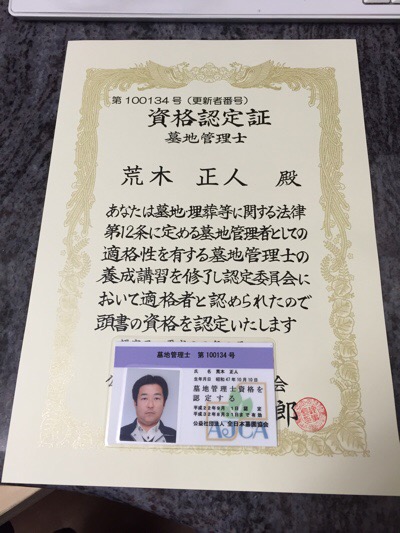 第100134号(更新者番号)
資格認定証
墓地管理士
荒木 正人 殿
あなたは墓地・埋葬等に関する法律
第12条に定める墓地管理者としての
適格性を有する墓地管理士の
養成講習を修了し認定委員会に
おいて適格者と認められたので
頭書の資格を認定いたします
会
郎
墓地管理士 第100134号
氏名 荒木 正人
生年月日 昭和47年10月10日
墓地管理士資格を
認定する
平成22年9月 1日 認定
平成32年8月31日まで有効
公益社団法人 全日本墓園協会
AJCA